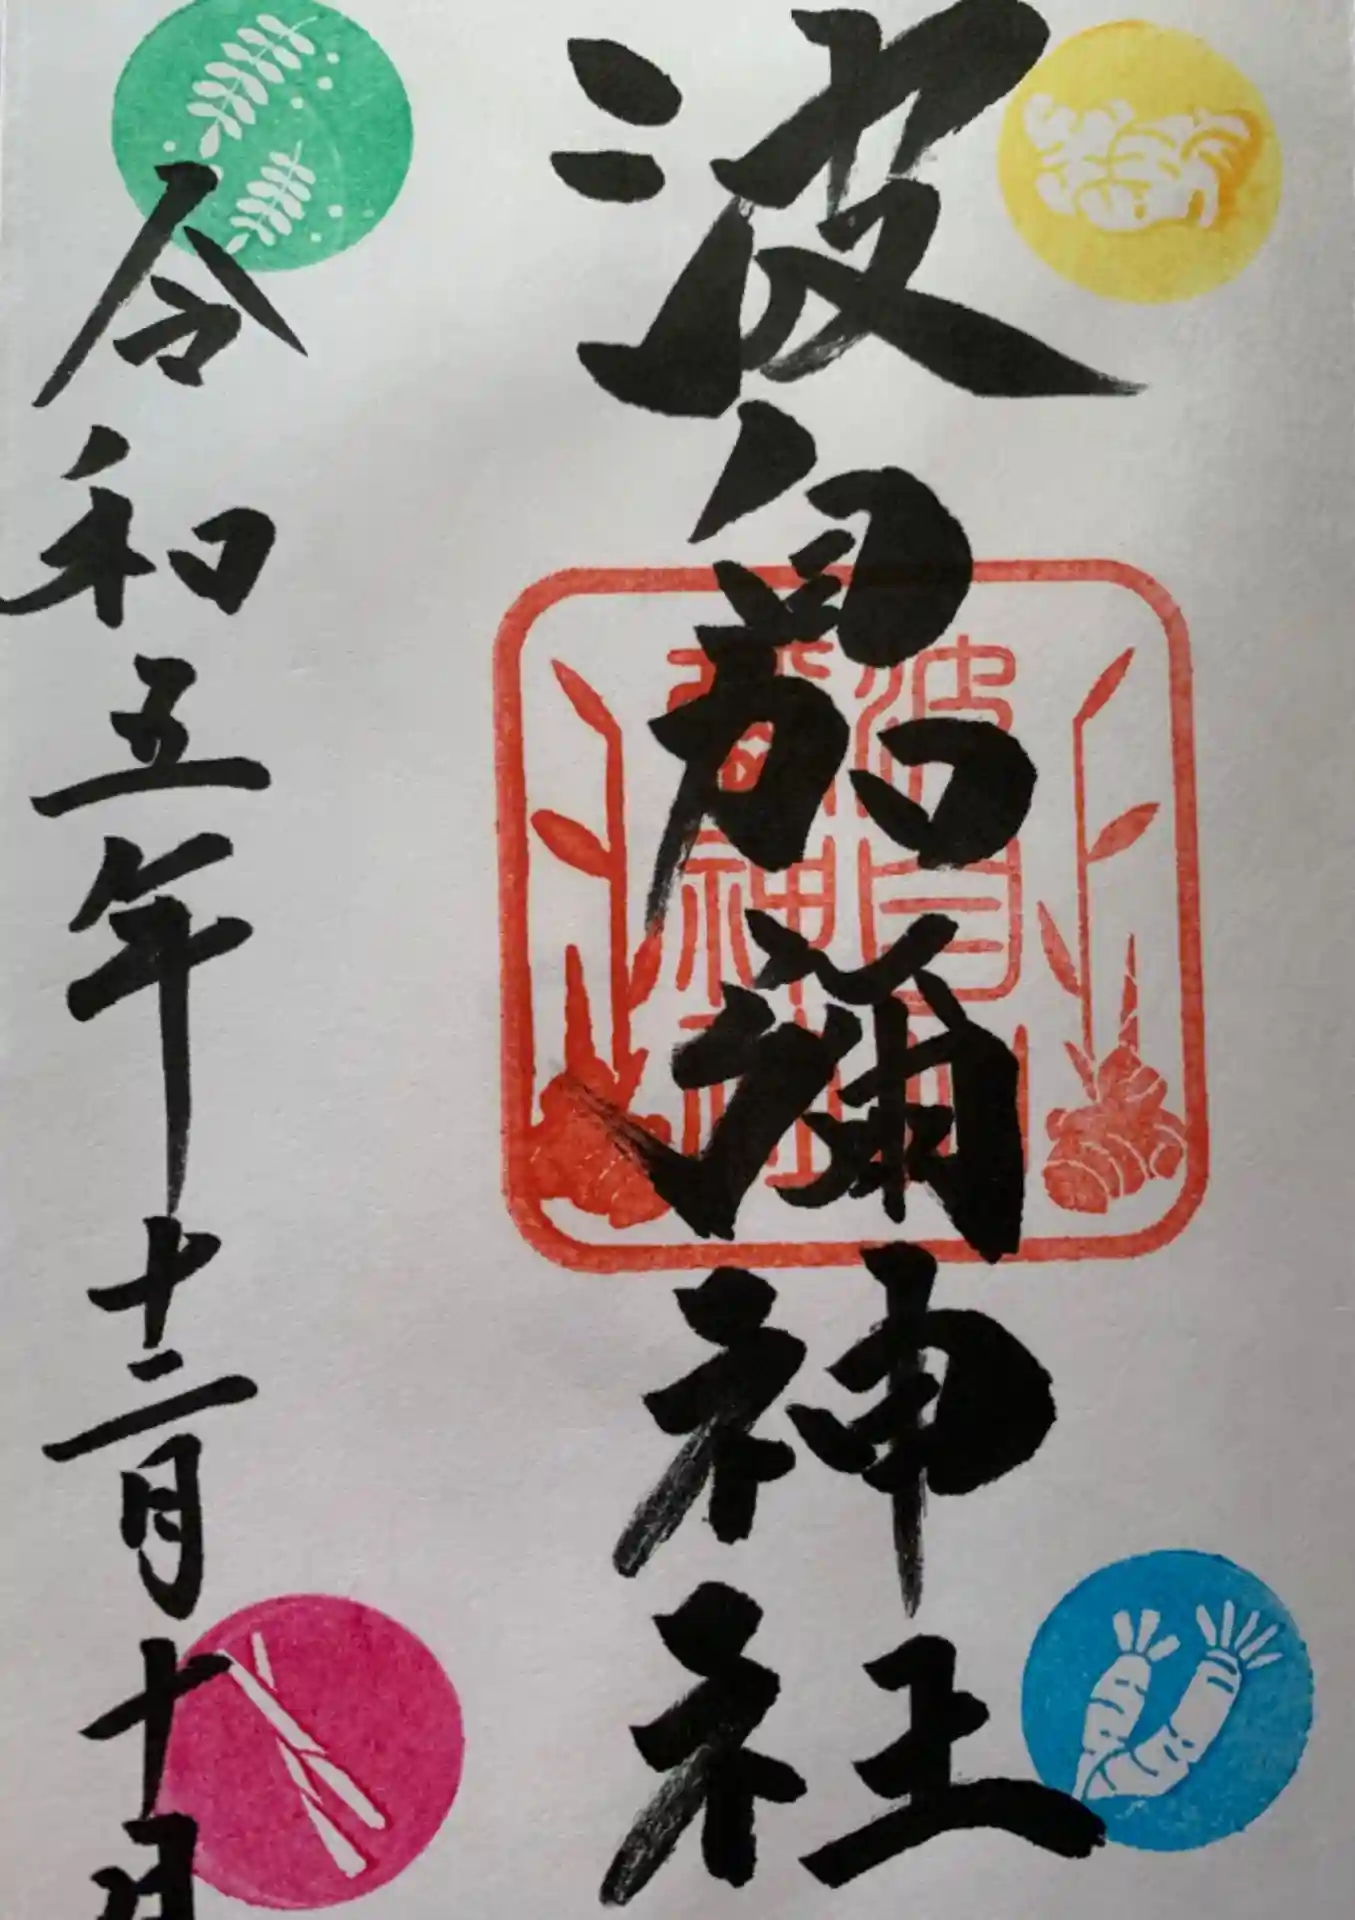 波自加彌神社
波自加
彌神社
令和五年十二月十日